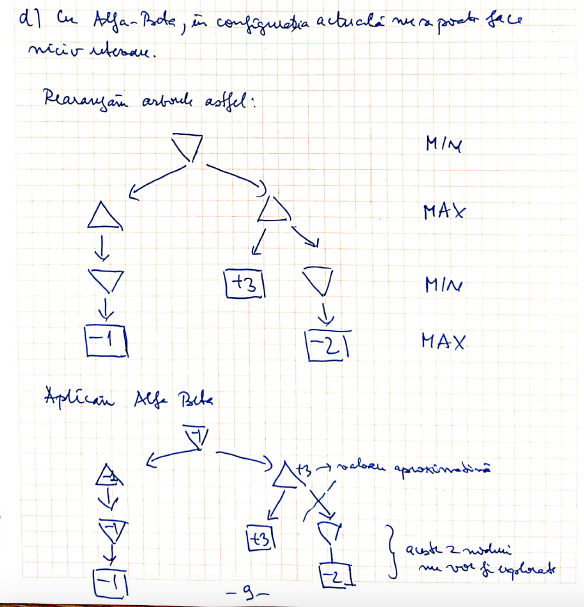 d) Cu Alfa-Beta, în configurația actuală nu se poate face
nicio retezare.
Rearanjăm arborele astfel:
MIN
MAX
+3
MIN
-1
-2
MAX
Aplicăm Alfa Beta
-1
-1
+3 → valoare aproximativă
-1
+3
aceste 2 noduri
nu vor fi explorate
-1
-2
-9-